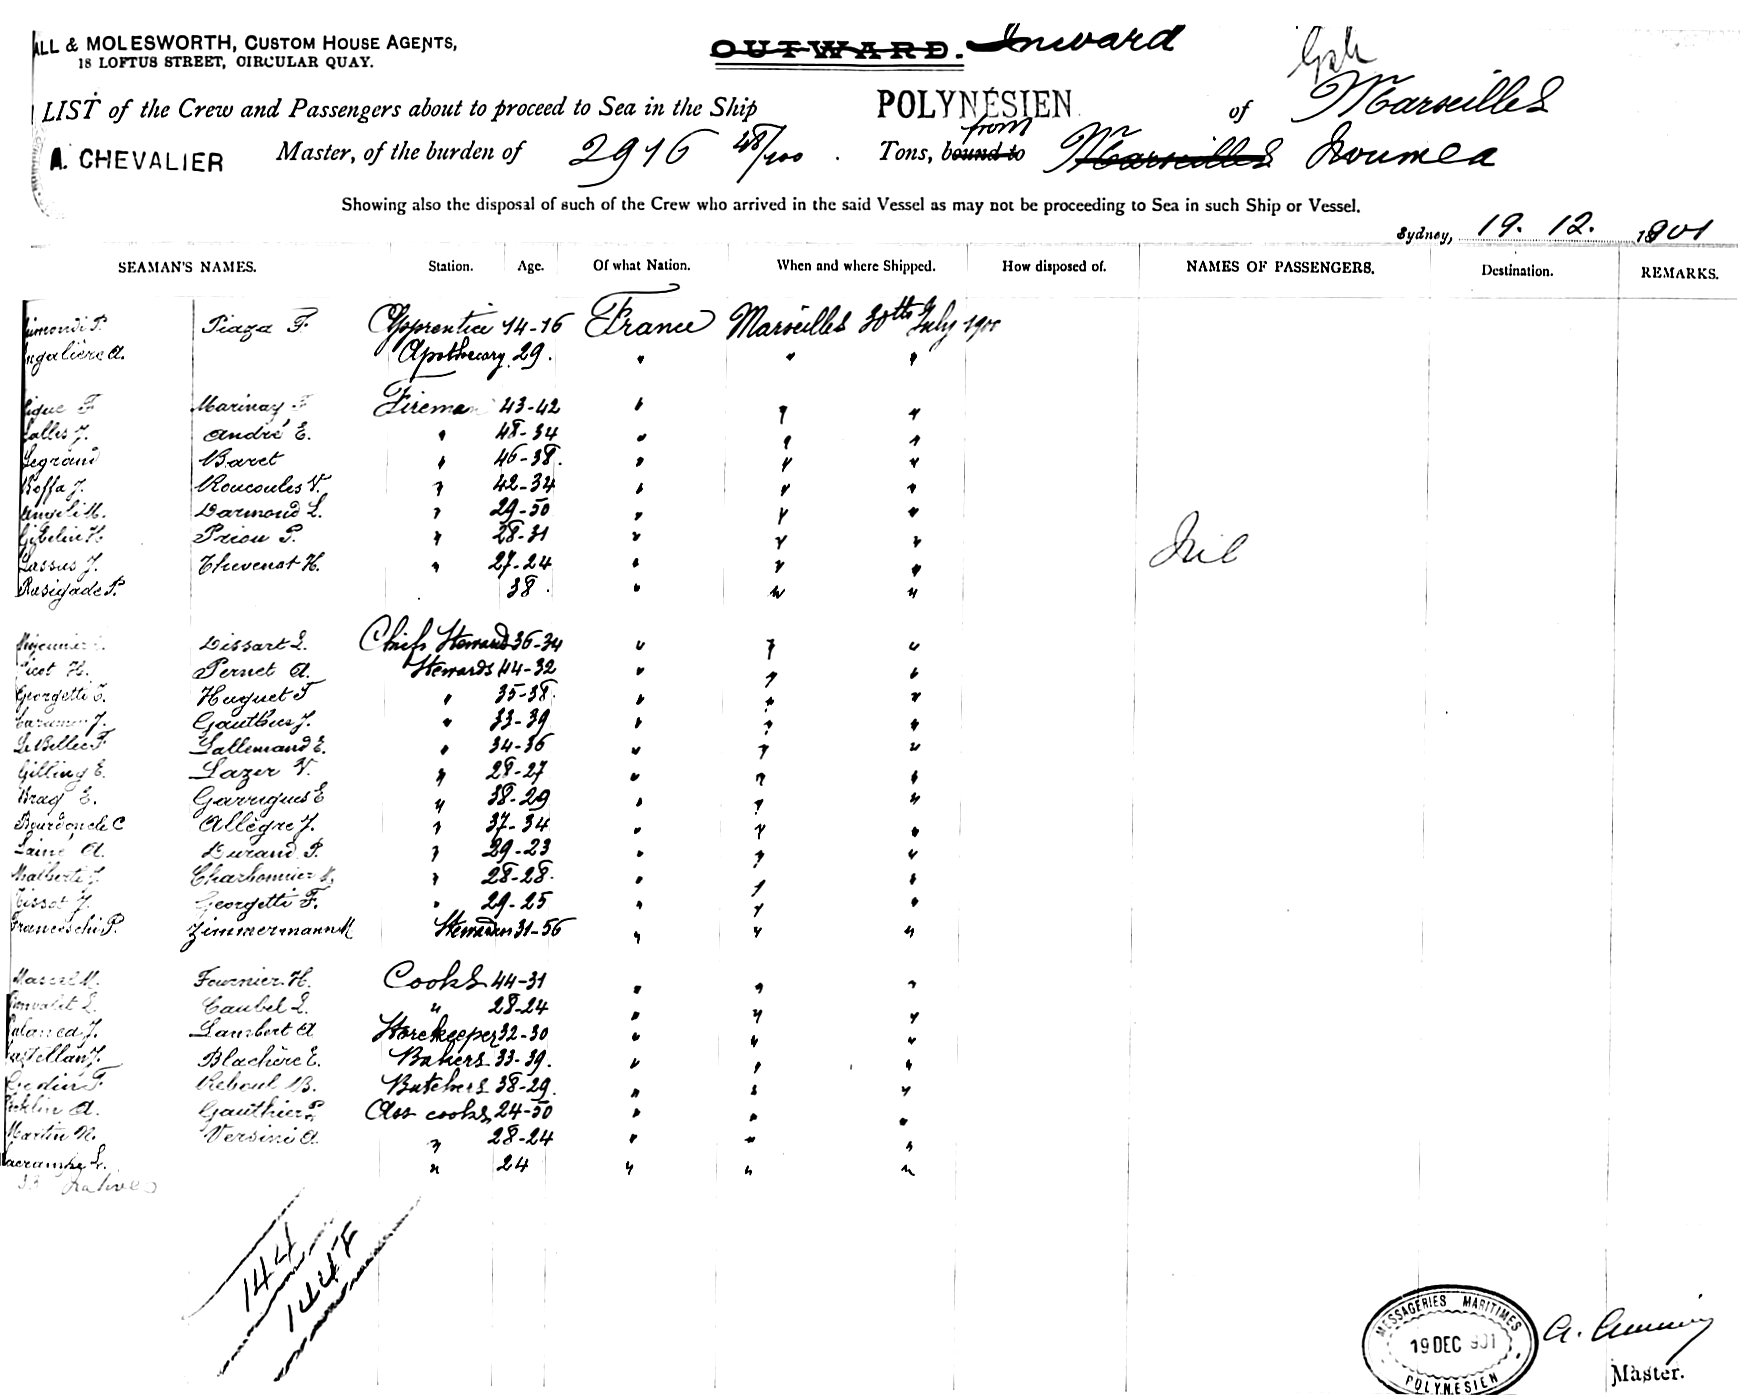 ALL & MOLESWORTH, CUSTOM HOUSE AGENTS,
18 LOFTUS STREET, CIRCULAR QUAY.
OUTWARD. Inward
LIST of the Crew and Passengers about to proceed to Sea in the Ship POLYNÉSIEN of Marseilles
A. CHEVALIER Master, of the burden of 2916 48/100 . Tons, bound to from Marseilles Noumea
Showing also the disposal of such of the Crew who arrived in the said Vessel as may not be proceeding to Sea in such Ship or Vessel.
Sydney, 19. 12. 1901
SEAMAN'S NAMES. Station. Age. Of what Nation. When and where Shipped. How disposed of. NAMES OF PASSENGERS. Destination. REMARKS.
Piaza F. Apprentice 14-16 France Marseilles 30th July 1901
Apothecary 29. " " "
Marinay F Fireman 43-42 " " "
Salles J. André E. " 48-34 " " "
Legrand Baret " 46-38. " " "
Boffa J. Roucoules V. " 42-34 " " "
Darmond L. " 29-50 " " "
Gibelin H. Priou P. " 28-31 " " "
Lassus J. Thevenot H. " 27-24 " " "
Rasigade P. 38. " " "
Nil
Dissart L. Chief Steward 36-34 " " "
Picot H. Pernet A. Stewards 44-32 " " "
Georgetti Huguet F " 35-38. " " "
Gauthier J. " 33-39 " " "
Le Bellec F. Lallemand E. " 34-36 " " "
Gilling E. Lazer V. " 28-27 " " "
Brag E. Garrigues E " 38-29 " " "
Bourdoncle C Allègre J. " 37-34 " " "
Lainé A. Durand P. " 29-23 " " "
Malberti J. Charbonnier " 28-28. " " "
Tissot J. Georgetti F. " 29-25 " " "
Franceschi P. Zimmermann M 31-56 " " "
Marcel M. Fournier H. Cooks 44-31 " " "
Caubel L. " 28-24 " " "
Lambert A Storekeeper 32-30 " " "
Castellan J. Blachère E. Bakers 33-39. " " "
Reboul B. Butchers 38-29. " " "
Gauthier P. Ass cooks 24-50 " " "
Martin N. Versini A. " 28-24 " " "
" 24 " " "
33 Natives
144
144F
MESSAGERIES MARITIMES
19 DEC 901
POLYNESIEN
Master.